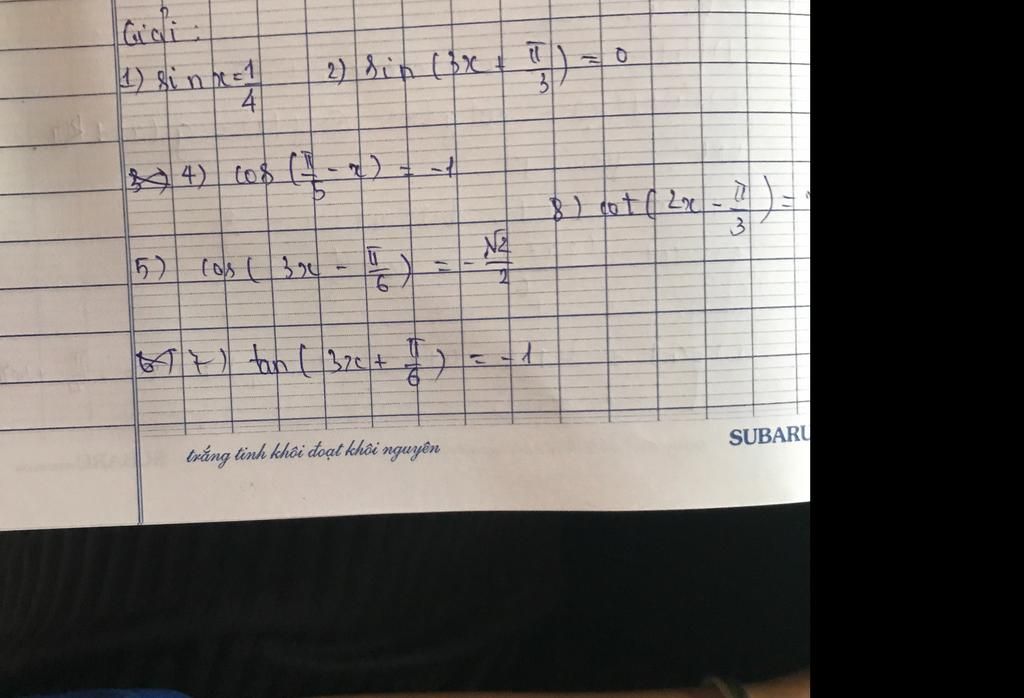 Giải:
1) sin x = 1/4 2) sin (3x + π/3) = 0
3) 4) cos (π/5 - x) = -1
8) cot (2x - π/3) =
5) cos ( 3x - π/6 ) = - √2/2
6) 7) tan ( 3x + π/6 ) = -1
trắng tinh khôi đoạt khôi nguyên
SUBARU